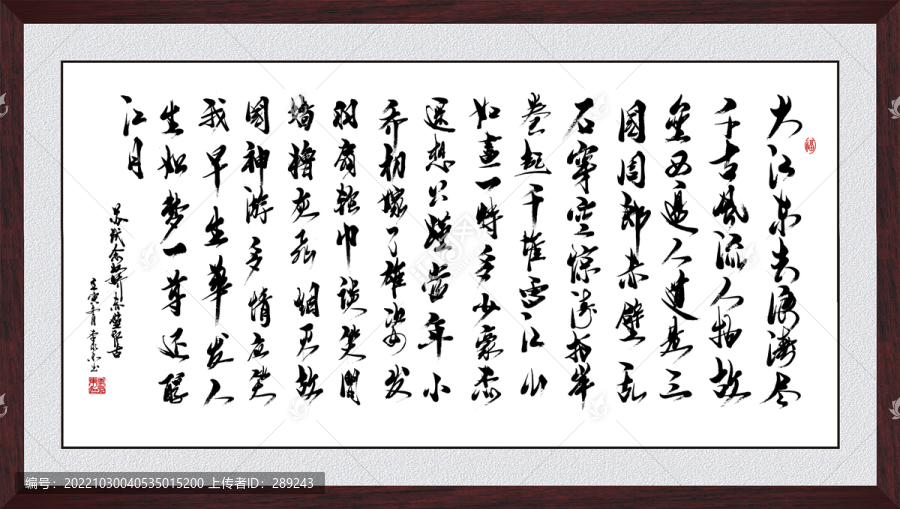 大江东去浪淘尽
千古风流人物故
垒西边人道是三
国周郎赤壁乱
石穿空惊涛拍岸
卷起千堆雪江山
如画一时多少豪杰
遥想公瑾当年小
乔初嫁了雄姿发
羽扇纶巾谈笑间
墙橹灰飞烟灭故
国神游多情应笑
我早生华发人
生如梦一尊还酹
江月
苏轼念奴娇赤壁怀古
壬寅
编号：20221030040535015200 上传者ID：289243